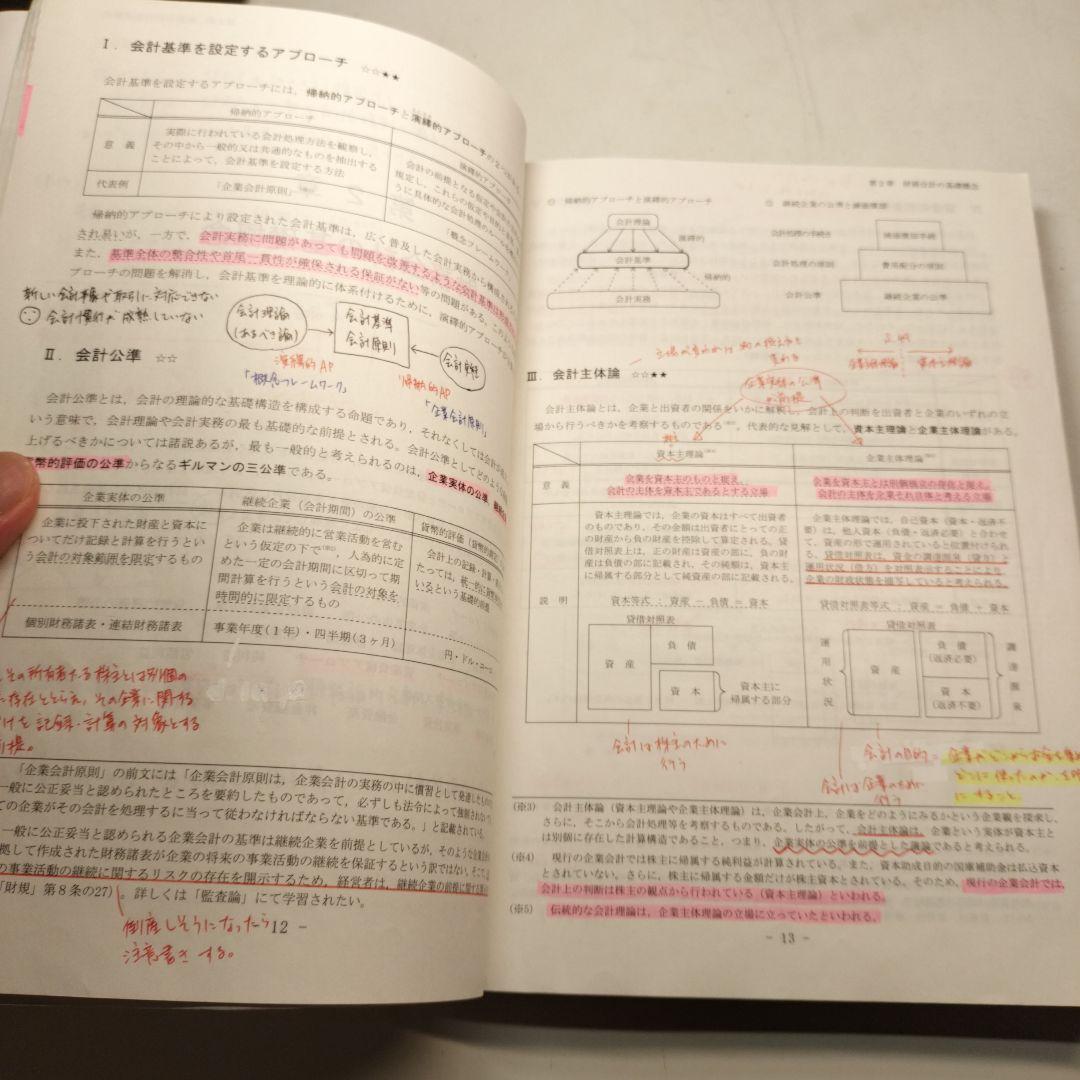 Ⅰ. 会計基準を設定するアプローチ ☆☆★★
会計基準を設定するアプローチには，帰納的アプローチと演繹的アプローチの2つがある。
帰納的アプローチ
演繹的アプローチ
意義
実際に行われている会計処理方法を観察し，
その中から一般的又は共通的なものを抽出する
ことによって，会計基準を設定する方法
会計の前提となる仮定や会計
規定し，これらの仮定や目的と
うに具体的な会計処理のルールを
代表例
「企業会計原則」
「概念フレームワーク」
帰納的アプローチにより設定された会計基準は，広く普及した会計実務から構成される
され易いが，一方で，会計実務に問題があっても問題を改善するような会計基準は
また，基準全体の整合性や首尾一貫性が確保される保証がない等の問題がある。このような
プローチの問題を解消し，会計基準を理論的に体系付けるために，演繹的アプローチが
新しい会計事象や取引に対応できない
会計慣行が成熟していない
会計理論
(あるべき論)
会計基準
会計原則
会計実務
演繹的AP
「概念フレームワーク」
帰納的AP
「企業会計原則」
Ⅱ. 会計公準 ☆☆
会計公準とは，会計の理論的な基礎構造を構成する命題であり，それなくしては会計が
いう意味で，会計理論や会計実務の最も基礎的な前提とされる。会計公準としてどのような
上げるべきかについては諸説あるが，最も一般的と考えられるのは，企業実体の公準，
貨幣的評価の公準からなるギルマンの三公準である。
企業実体の公準
継続企業（会計期間）の公準
貨幣的評価（貨幣的
企業に投下された財産と資本に
ついてだけ記録と計算を行うとい
う会計の対象範囲を限定するもの
企業は継続的に営業活動を営む
という仮定の下で，人為的に定
めた一定の会計期間に区切って期
間計算を行うという会計の対象を
時間的に限定するもの
会計上の記録・計算・
たっては，統一的に貨幣
いるという基礎的前提
個別財務諸表・連結財務諸表
事業年度(1年)・四半期(3ヶ月)
円・ドル・ユーロ
その所有者たる株主とは別個の
存在ととらえ，その企業に関する
けを記録・計算の対象とする
前提。
「企業会計原則」の前文には「企業会計原則は，企業会計の実務の中に慣習として発達したもの
一般に公正妥当と認められたところを要約したものであって，必ずしも法令によって強制されないで
ての企業がその会計を処理するに当って従わなければならない基準である。」と記載されている。
一般に公正妥当と認められる企業会計の基準は継続企業を前提としているが，そのような企業会計
拠して作成された財務諸表が企業の将来の事業活動の継続を保証するという訳ではない。そこで，
の事業活動の継続に関するリスクの存在を開示するため，経営者は，継続企業の前提に関する
「財規」第8条の27）。詳しくは「監査論」にて学習されたい。
倒産しそうになったら
注意書きする。
- 12 -
第2章 財務会計の基礎概念
① 帰納的アプローチと演繹的アプローチ
会計理論
演繹的
会計基準
帰納的
会計実務
② 継続企業の公準と損益原則
会計処理の手続き
減価償却手続
会計処理の原則
費用配分の原則
会計公準
継続企業の公準
企業主体理論
資本主理論
企業実体の公準
が前提
Ⅲ. 会計主体論 ☆☆★★
会計主体論とは，企業と出資者の関係をいかに解釈し，会計上の判断を出資者と企業のいずれの立
場から行うべきかを考察するものである。代表的な見解として，資本主理論と企業主体理論がある。
資本主理論
企業主体理論
意義
企業を資本主のものと捉え，
会計の主体を資本主であるとする立場
企業を資本主とは別個独立の存在と捉え，
会計の主体を企業それ自体と考える立場
説明
資本主理論では，企業の資産はすべて出資者
のものであり，その金額は出資者にとっての正
の財産から負の財産を控除して算定される。貸
借対照表上は，正の財産は資産の部に，負の財
産は負債の部に記載され，その純額は，資本主
に帰属する部分として純資産の部に記載される。
資本等式：資産 － 負債 ＝ 資本
貸借対照表
資産
負債
資本
資本主に
帰属する部分
企業主体理論では，自己資本（資本・返済不
要）は，他人資本（負債・返済必要）と合わせ
て，資産の形で運用されていると位置付けられ
る。貸借対照表は，資金の調達源泉（貸方）と
運用状況（借方）を対照表示することにより，
企業の財政状態を描写していると考えられる。
貸借対照表等式：資産 ＝ 負債 ＋ 資本
貸借対照表
運用状況
資産
負債
(返済必要)
資本
(返済不要)
調達源泉
会計は株主のために
行う
会計は企業のために
行う
会計の目的＝
(※3) 会計主体論（資本主理論や企業主体理論）は，企業会計上，企業をどのようにみるかという企業観を探求し，
さらに，そこから会計処理等を考察するものである。したがって，会計主体論は，企業という実体が資本主と
は別個に存在した計算構造であること，つまり，企業実体の公準を前提とした議論であると考えられる。
(※4) 現行の企業会計では株主に帰属する純利益が計算されている。また，資本助成目的の国庫補助金は払込資本
とされていない。さらに，株主に帰属する金額だけが株主資本とされている。そのため，現行の企業会計では，
会計上の判断は株主の観点から行われている（資本主理論）といわれる。
(※5) 伝統的な会計理論は，企業主体理論の立場に立っていたといわれる。
- 13 -